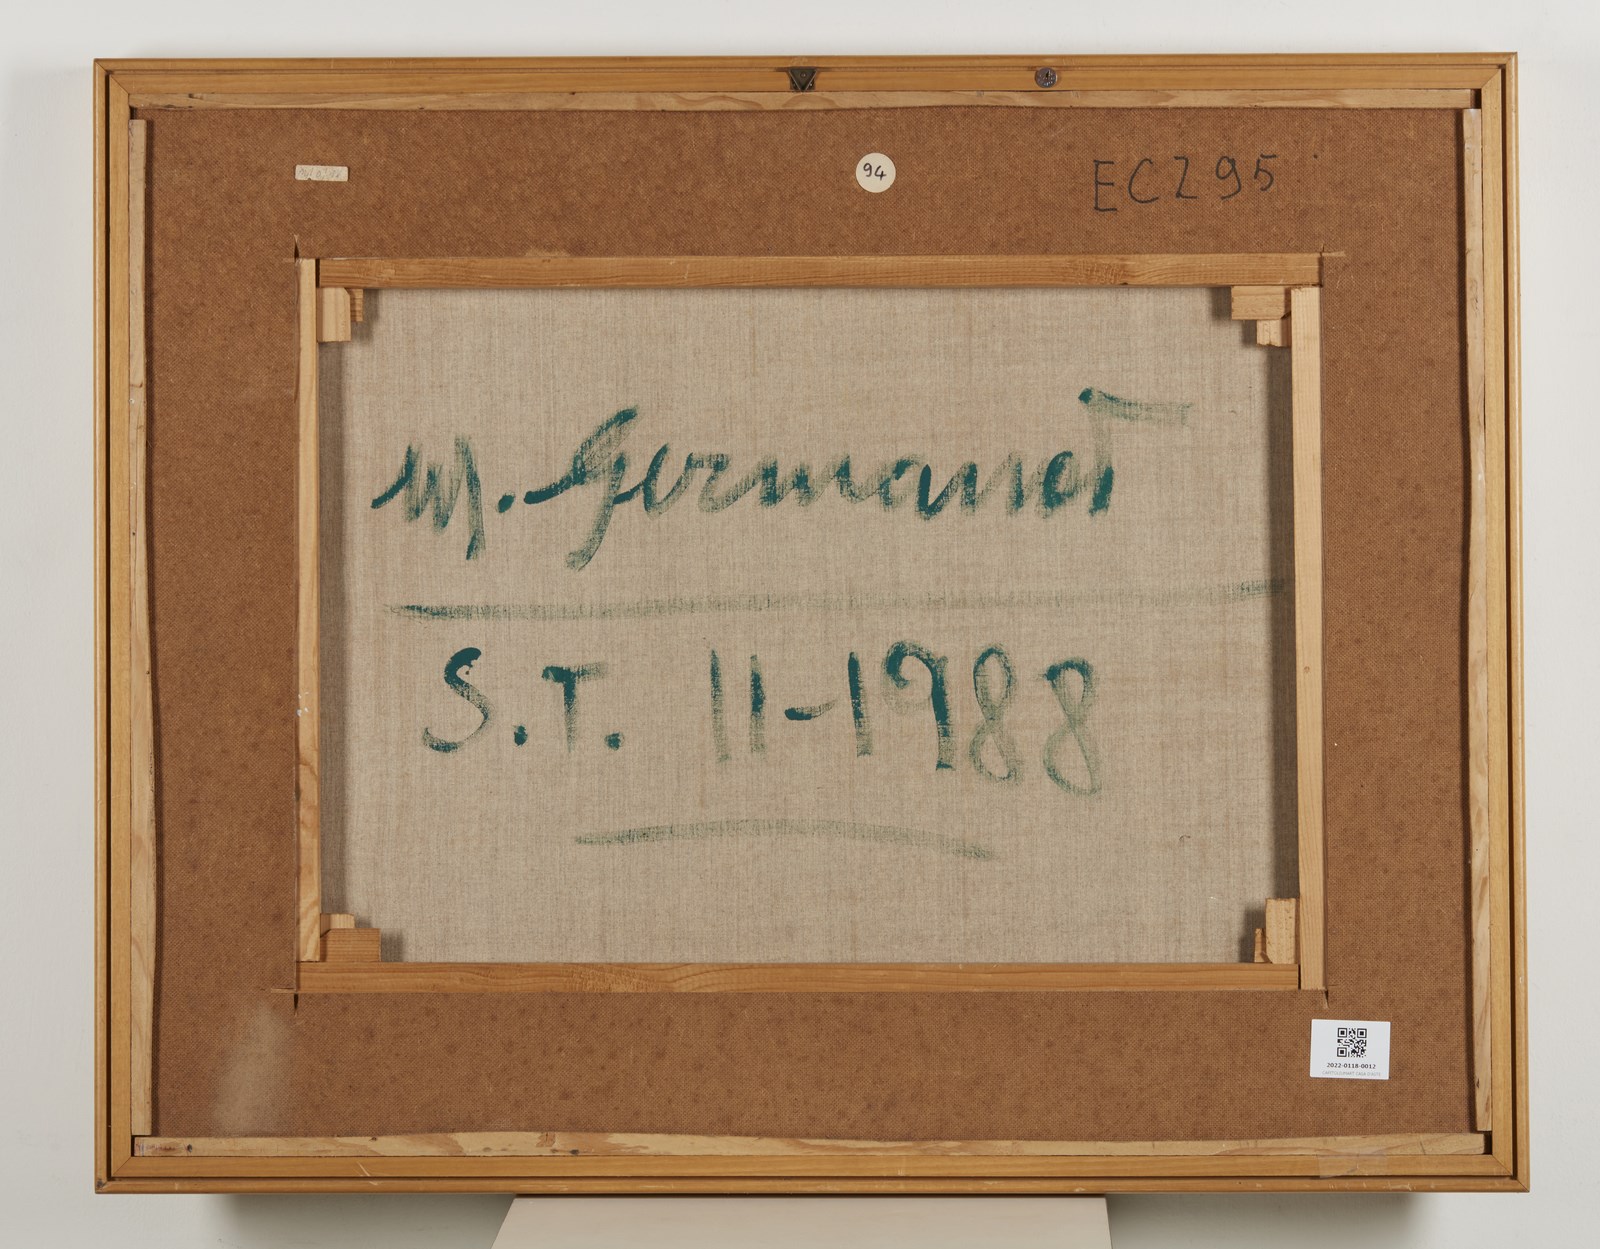 94
ECZ95
M. Germanet
S.T. 11-1988
2022-0118-0012